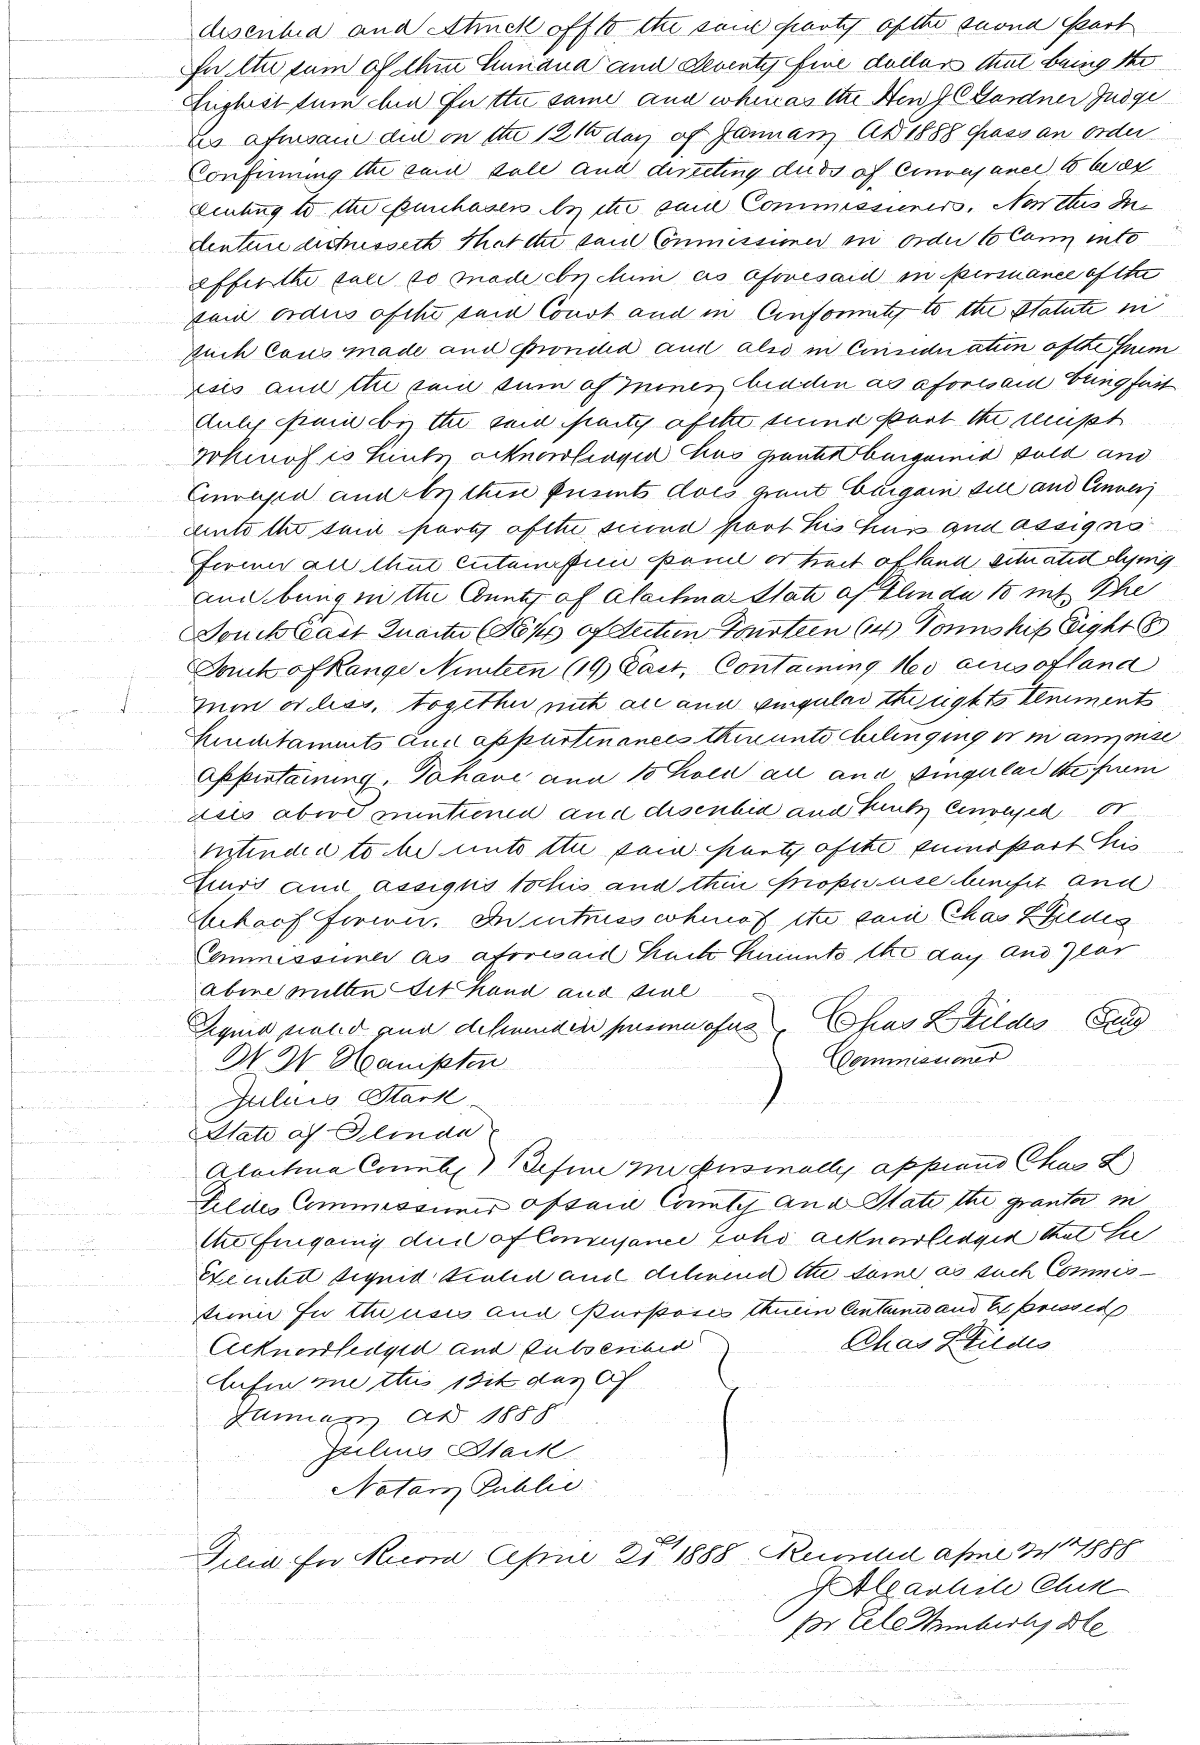 described and struck off to the said party of the second part
for the sum of three hundred and seventy five dollars that being the
highest sum bid for the same and whereas the Hon J C Gardner Judge
as aforesaid did on the 12th day of January AD 1888 pass an order
Confirming the said sale and directing deeds of Conveyance to be ex
ecuting to the purchasers by the said Commissioners. Now this In-
denture witnesseth that the said Commissioner in order to Carry into
effect the sale so made by him as aforesaid in persuance of the
said orders of the said Court and in Conformity to the Statute in
such Cases made and provided and also in Consideration of the Prem
ises and the said sum of money bidden as aforesaid being first
duly paid by the said party of the second part the receipt
whereof is hereby acknowledged has granted bargained sold and
Conveyed and by these presents does grant bargain sell and Convey
unto the said party of the second part his heirs and assigns
forever all that certain piece parcel or tract of land situated lying
and being in the County of Alachua State of Florida to wit The
South East Quarter (SE1/4) of Section Fourteen (14) Township Eight (8)
South of Range Nineteen (19) East, Containing 160 acres of land
more or less, together with all and singular the rights tenements
hereditaments and appurtinances thereunto belonging or in anywise
appertaining. To have and to hold all and singular the prem
ises above mentioned and described and hereby Conveyed or
intended to be unto the said party of the second part his
heirs and assigns to his and their proper use benefit and
behoof forever. In witness whereof the said Chas L Fildes
Commissioner as aforesaid hath hereunto the day and year
above written set hand and seal
Signed sealed and delivered in presence of us Chas L Fildes Seal
W W Hampton Commissioner
Julius Stark
State of Florida
Alachua County } Before me personally appeared Chas L
Fildes Commissioner of said County and State the grantor in
the foregoing deed of Conveyance who acknowledged that he
Executed signed sealed and delivered the same as such Commis-
sioner for the uses and purposes therein Contained and Expressed
Acknowledged and subscribed Chas L Fildes
before me this 13th day of
January AD 1888
Julius Stark
Notary Public
Filed for Record April 21st 1888 Recorded April 1888
J A Carlisle Clerk
pr Wimberly DC